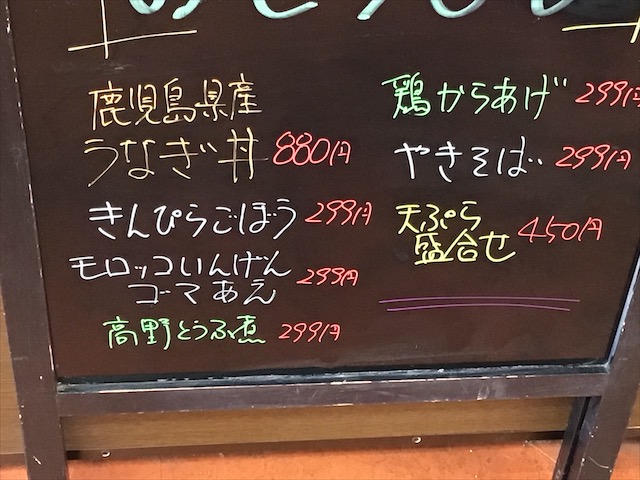 鹿児島県産
うなぎ丼 880円
きんぴらごぼう 299円
モロッコいんげん
ゴマあえ 299円
高野とうふ煮 299円
鶏からあげ 299円
やきそば 299円
天ぷら
盛合せ 450円